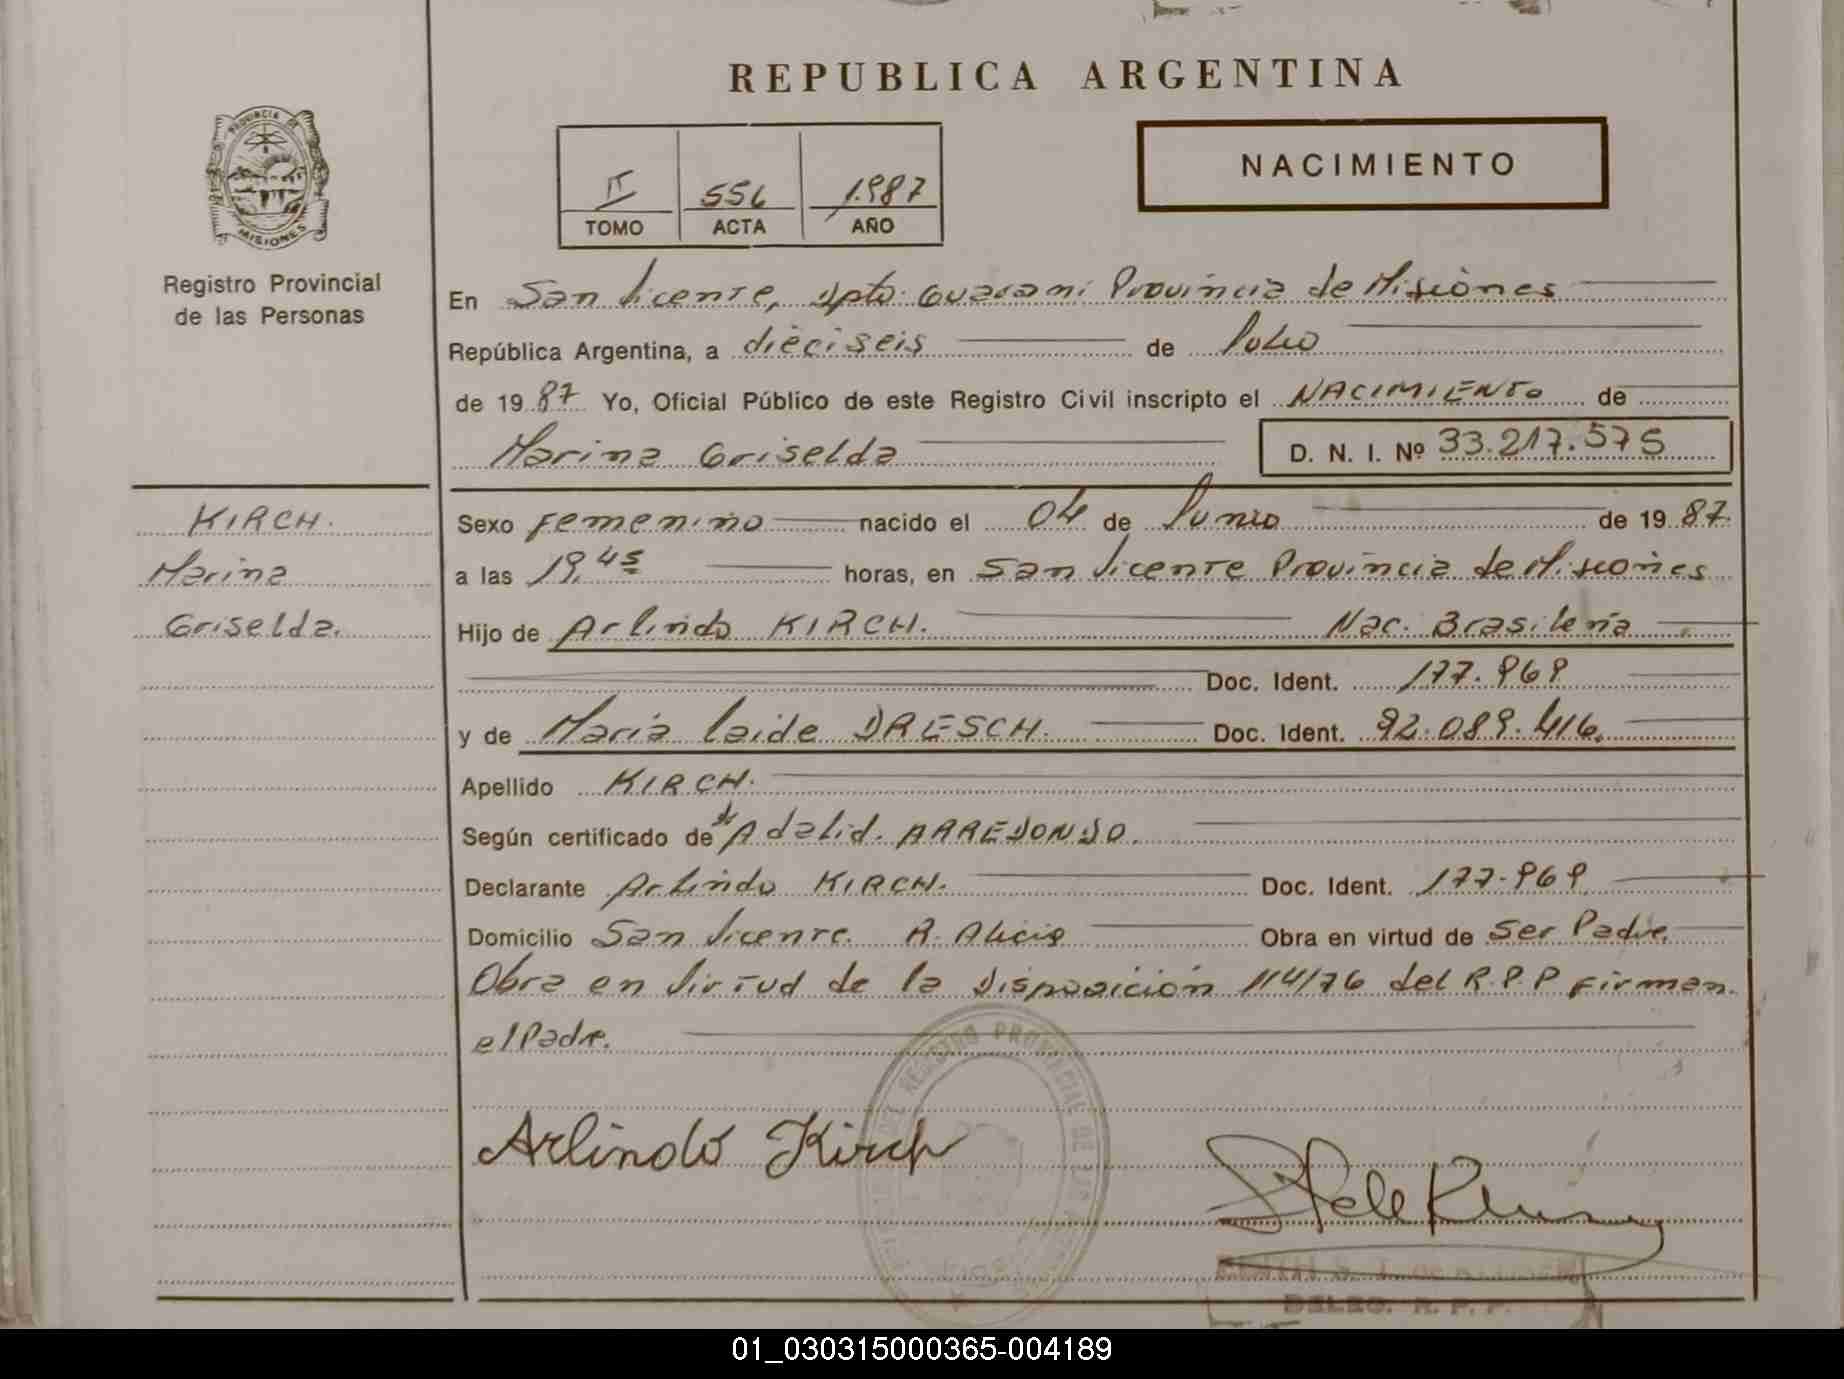 REPUBLICA ARGENTINA
PROVINCIA DE
MISIONES
Registro Provincial
de las Personas
II 556 1.987
TOMO ACTA AÑO
NACIMIENTO
En San Vicente, Dpto. Guaraní Provincia de Misiones
República Argentina, a dieciseis de Julio
de 19 87 Yo, Oficial Público de este Registro Civil inscripto el NACIMIENTO de
Marina Griselda D. N. I. Nº 33.217.575
KIRCH.
Marina
Griselda.
Sexo Femenino nacido el 04 de Junio de 19 87.
a las 19,45 horas, en San Vicente Provincia de Misiones
Hijo de Arlindo KIRCH. Nac. Brasileña
Doc. Ident. 177.969
y de Maria Laide DRESCH. Doc. Ident. 92.089.416.
Apellido KIRCH.
Según certificado de Dr Adalid. ARREDONDO.
Declarante Arlindo KIRCH. Doc. Ident. 177.969
Domicilio San Vicente. R. Alicia Obra en virtud de Ser Padre.
Obra en Virtud de la Disposición 114/76 del R.P.P Firman.
el Padre.
REGISTRO PROVINCIAL DE LAS
Arlindo Kirch
DELEG. R. P. P.
01_030315000365-004189